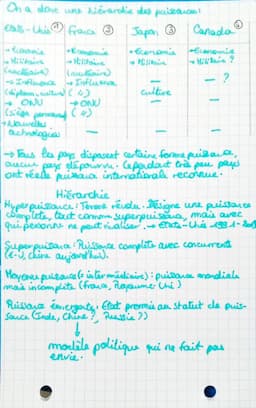 On a donc une hiérarchie des puissances:
Etats-Unis ① France ② Japon ③ Canada ④
→ Economie → Economie → Economie → Economie
→ Militaire → Militaire → Militaire → Militaire ?
(nucléaire) (nucléaire)
→ Influence → Influence — — ?
(diplom, culture) ( " ) culture
→ ONU → ONU — —
(siège permanent) ( " )
→ Nouvelles — — —
technologies
→ Tous les pays disposent certaine forme puissance,
aucun pays dépourvu. Cependant très peu pays
ont réelle puissance internationale reconnue.
Hiérarchie
Hyperpuissance: Terme révolu. Désigne une puissance
complète, tout comme superpuissance, mais avec
qui personne ne peut rivaliser. → Etats-Unis 1991-2001
Superpuissance: Puissance complète avec concurrents
(E-U, Chine aujourd'hui).
Moyenne puissance (= intermédiaire): puissance mondiale
mais incomplète (France, Royaume-Uni)
Puissance émergente: Etat promis au statut de puis-
sance (Inde, Chine ?, Russie ?)
↓
modèle politique qui ne fait pas
envie.